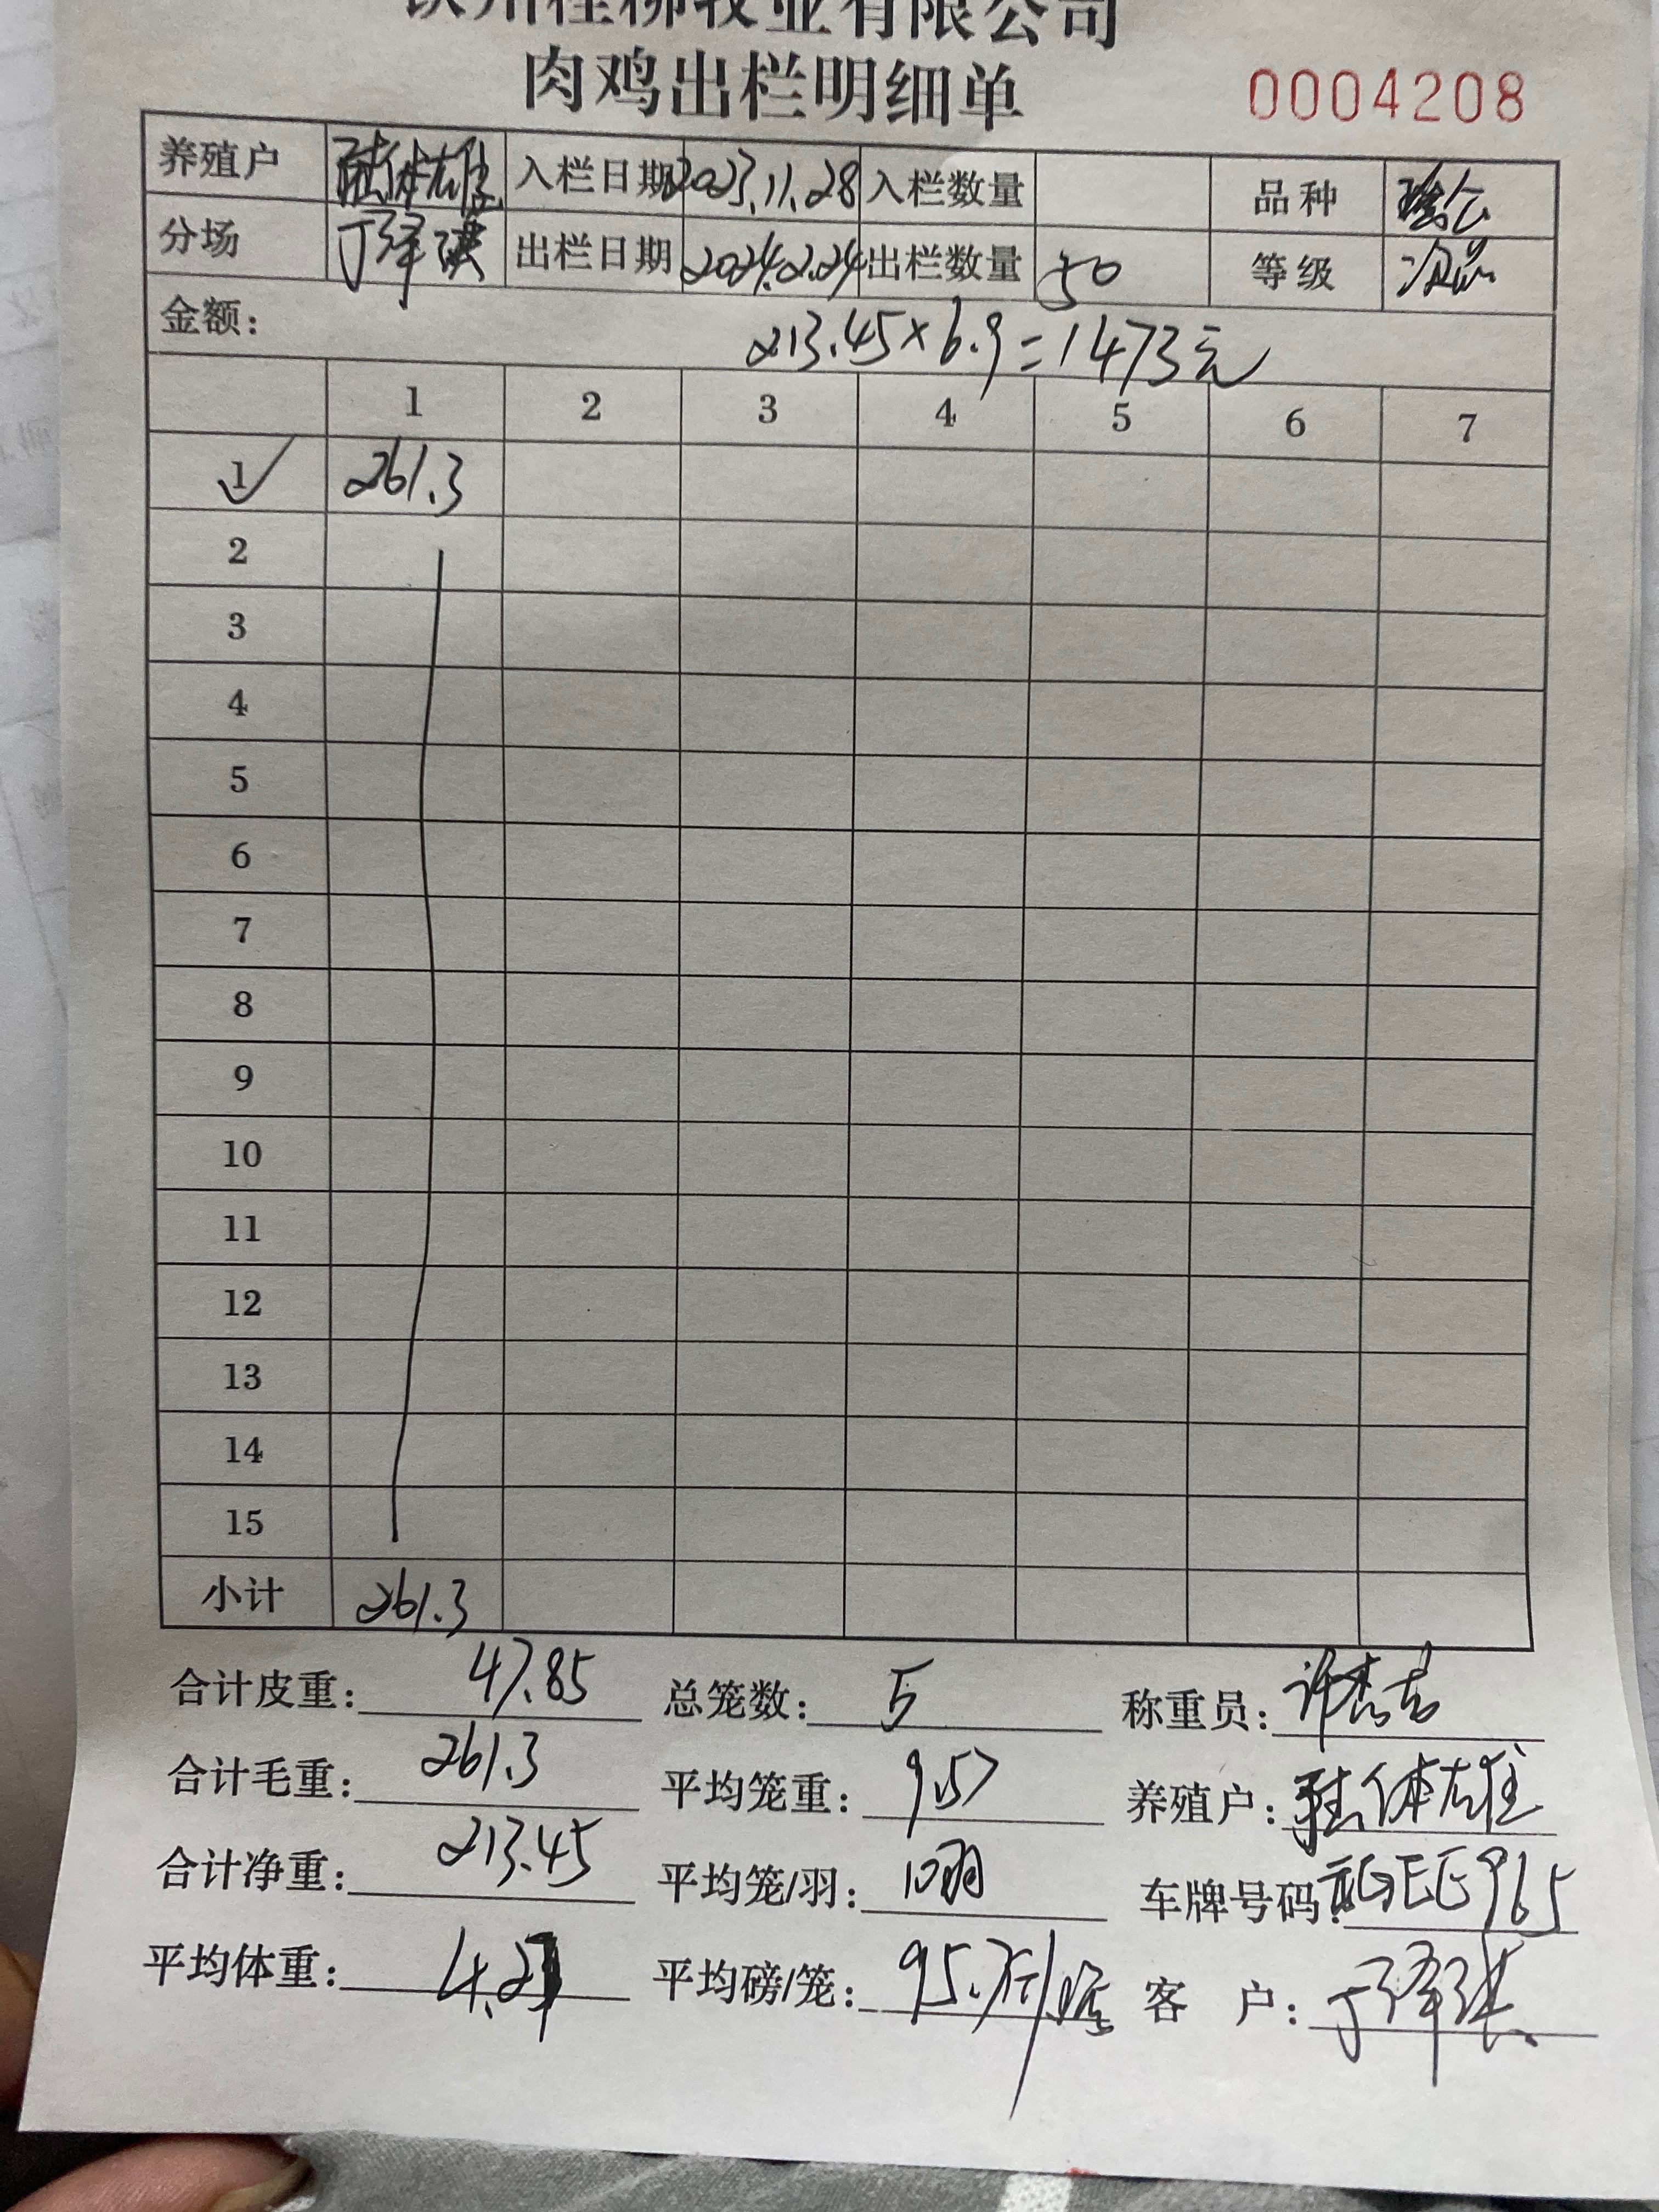 钦州桂柳牧业有限公司
肉鸡出栏明细单
0004208
养殖户 入栏日期 2023.11.28 入栏数量 品种
分场 丁泽 出栏日期 2024.2.24 出栏数量 50 等级 次品
金额： 213.45×6.9=1473元
1 2 3 4 5 6 7
1 261.3
2
3
4
5
6
7
8
9
10
11
12
13
14
15
小计 261.3
合计皮重： 47.85 总笼数： 5 称重员： 许杰吉
合计毛重： 261.3 平均笼重： 9.57 养殖户：
合计净重： 213.45 平均笼/羽： 10羽 车牌号码： GEE965
平均体重： 4.27 平均磅/笼： 95. 客 户： 丁泽